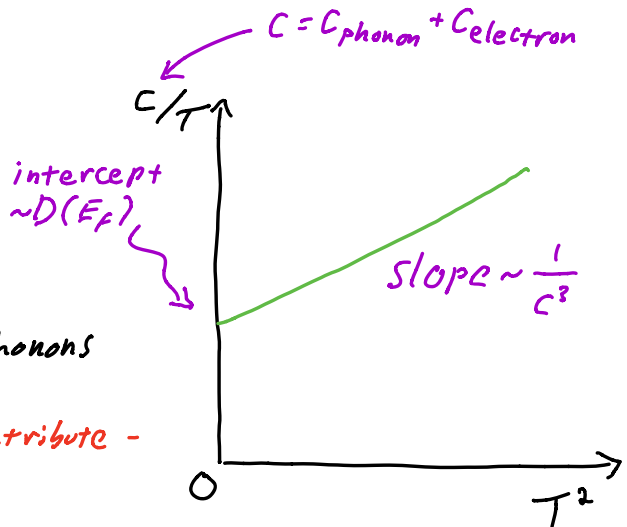 C = Cphonon + Celectron
C/T
intercept
~D(EF)
slope ~ 1/c³
honons
tribute -
O
T²